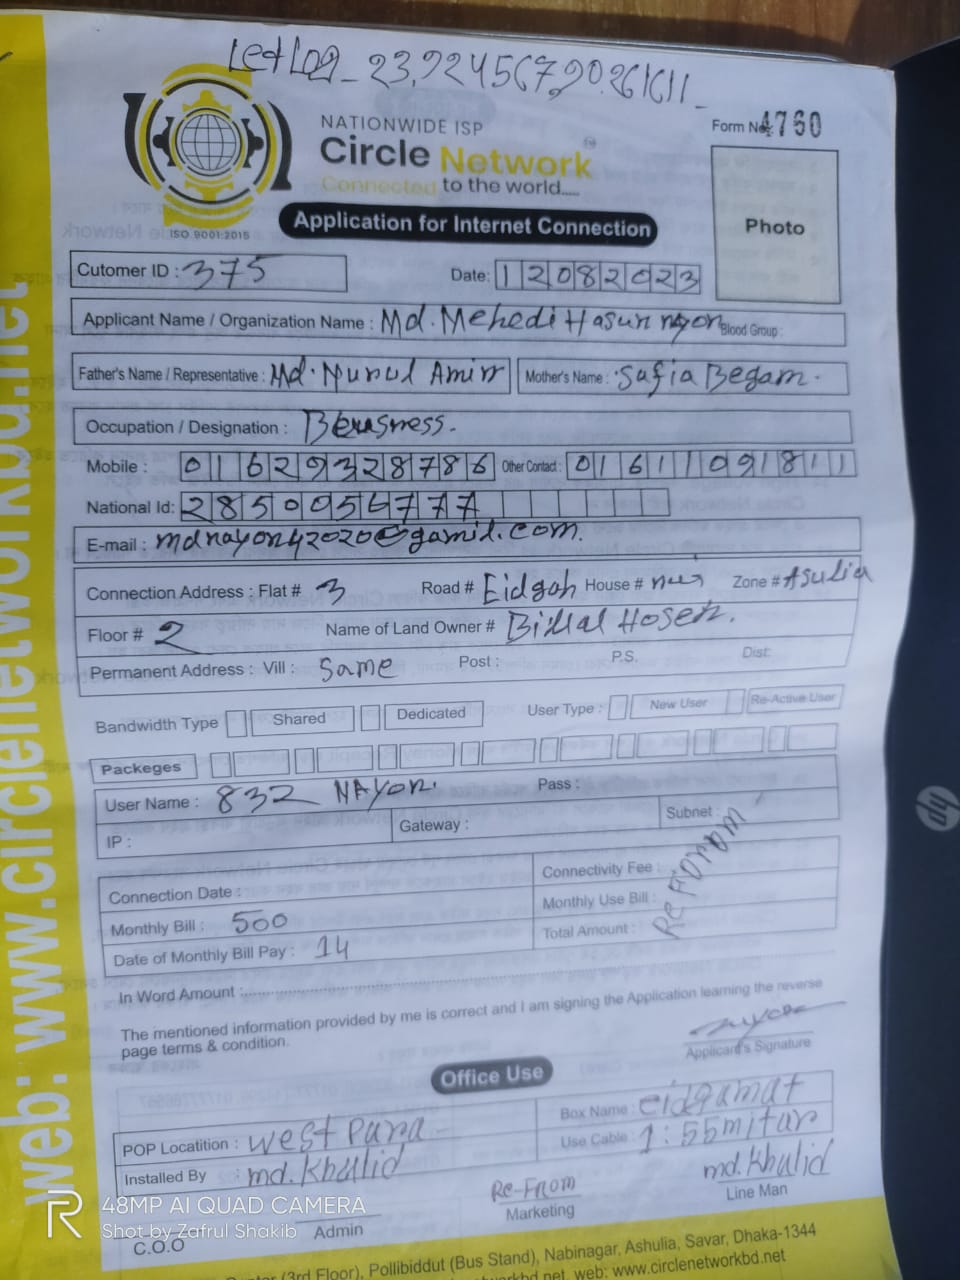 Letlog_23.9245679,90.261611_
NATIONWIDE ISP
Circle Network
Connected to the world.....
ISO 9001:2015
Form No. 4760
Photo
Application for Internet Connection
Cutomer ID : 375
Date: 12082023
Applicant Name / Organization Name : Md. Mehedi Hasun nyon Blood Group :
Father's Name / Representative : Md. Nurul Amin
Mother's Name : Safia Begam.
Occupation / Designation : Beusness.
Mobile : 01629328786 Other Contact : 01611091811
National Id: 2850056777
E-mail : mdnayon42020@gamil.com.
Connection Address : Flat # 3 Road # Eidgah House # nai Zone # Asulia
Floor # 2 Name of Land Owner # Billal Hosen.
Permanent Address : Vill : Same Post : P.S. Dist:
Bandwidth Type Shared Dedicated User Type : New User Re-Active User
Packeges
User Name : 832 NAYON. Pass :
IP : Gateway : Subnet :
Connection Date : Connectivity Fee :
Monthly Bill : 500 Monthly Use Bill :
Date of Monthly Bill Pay : 14 Total Amount :
Re Forom
In Word Amount :
The mentioned information provided by me is correct and I am signing the Application learning the reverse
page terms & condition.
Applicant's Signature
Office Use
POP Locatition : west para Box Name : eidgamat
Use Cable : 1:55mitar
Installed By : md. Khalid
Re-From
md. Khalid
C.O.O Admin Marketing Line Man
(3rd Floor), Pollibiddut (Bus Stand), Nabinagar, Ashulia, Savar, Dhaka-1344
web: www.circlenetworkbd.net
web: www.circlenetworkbd.net
hp
48MP AI QUAD CAMERA
Shot by Zafrul Shakib